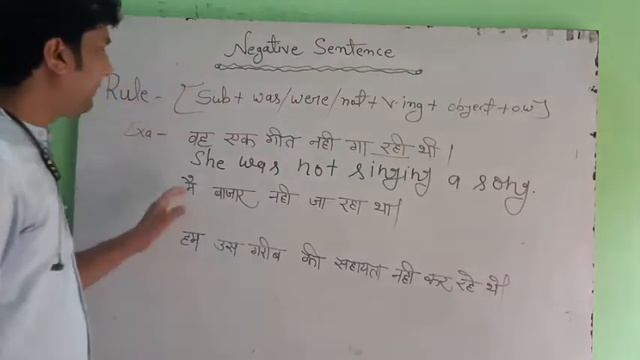 Negative Sentence
Rule - [Sub + was/were/not + v-ing + object + ow]
Exa - वह एक गीत नही गा रही थी।
She was not singing a song.
मै बाजार नही जा रहा था।
हम उस गरीब की सहायता नही कर रहे थे।